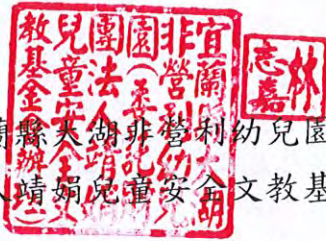 宜蘭縣大湖
非營利幼兒
園(委託財
團法人靖娟
兒童安全文
教基金會辦理)
林
志嘉
蘭縣大湖非營利幼兒園
人靖娟兒童安全文教基